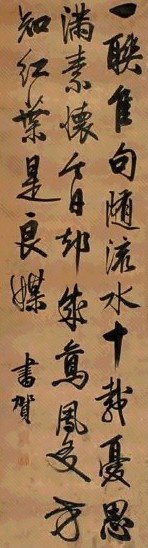 一聯佳句随流水十載憂思
滿素懷今日却成鸞鳳友方
知紅葉是良媒
書賀